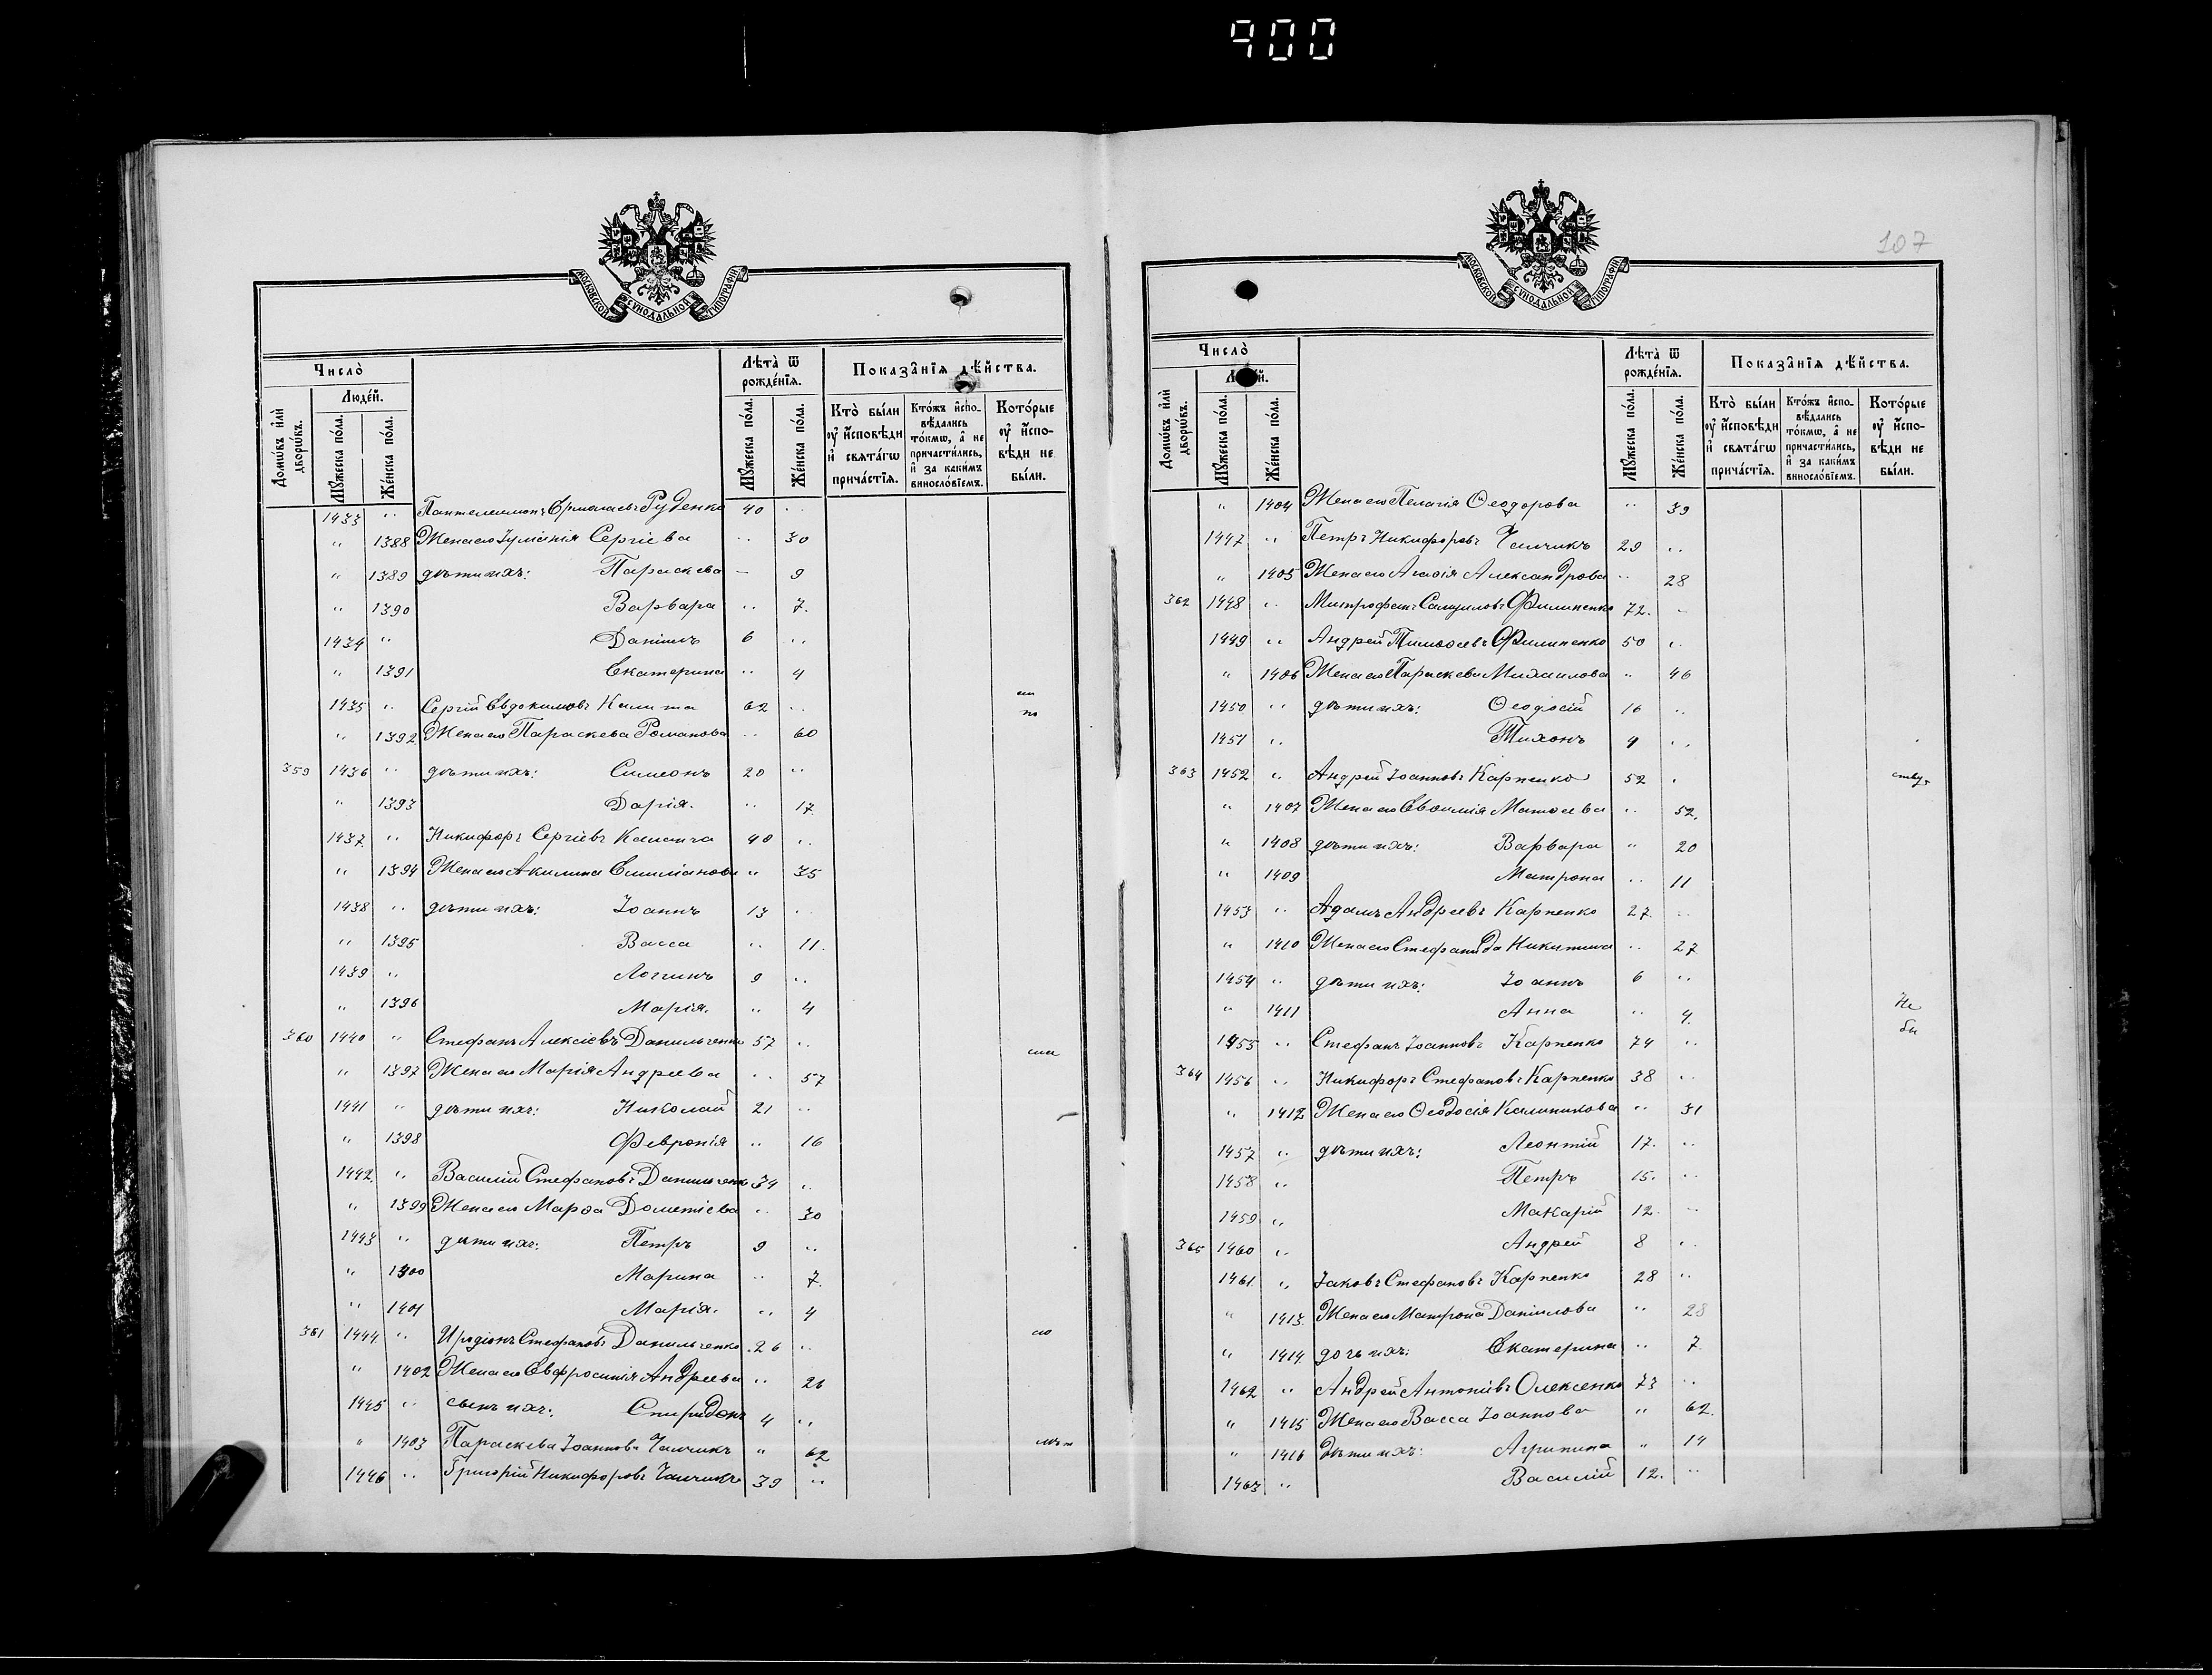 900
МОСКОВСКОЙ СУНОДАЛЬНОЙ ТИПОГРАФІИ
Число̀
Людéй.
Домѡ́въ и҆лѝ дворѡ́въ.
Мꙋ́жеска по́ла.
Же́нска по́ла.
Лѣта̀ ѿ рожде́нїя.
Мꙋ́жеска по́ла.
Же́нска по́ла.
Показа̂нїя дѣ́йства.
Кто̀ бы́ли ᲂу҆ и҆сповѣди и҆ свѧта́гѡ прича́стїя.
Кто́жъ и҆спо- вѣдались то́кмѡ, а҆ не причасти́лись, и҆ за каки́мъ винослóвїемъ.
Кото́рые ᲂу҆ и҆спо- вѣди не бы́ли.
1433 " Пантелеимонъ Ермолаевъ Руденко 40 "
" 1388 Жена его Іуліанія Сергіева " 30
" 1389 дѣти ихъ: Параскева — 9
" 1390 Варвара " 7.
1434 " Даніилъ 6 "
" 1391 Екатерина " 4
1435 " Сергій Евдокимовъ Калита 62 "
" 1392 Жена его Параскева Романова " 60
359 1436 " дѣти ихъ: Симеонъ 20 "
" 1393 Дарія. " 17.
1437. " Никифоръ Сергіевъ Калита 40 "
" 1394 Жена его Акилина " 35
1438 " дѣти ихъ: Іоаннъ 13 "
" 1395 Васса " 11.
1439 " Логгинъ 9 "
" 1396 Марія. " 4
360 1440 " Стефанъ Алексіевъ Данильченко 57 "
" 1397 Жена его Марія Андреева " 57
1441 " дѣти ихъ: Николай 21 "
" 1398 Февронія " 16
1442 " Василій Стефановъ Данильченко 34 "
" 1399 Жена его Марѳа Дометіева " 30
1443 " дѣти ихъ: Петръ 9 "
" 1300 Марина " 7.
" 1401 Марія. " 4
361 1444 " Иродіонъ Стефановъ Данильченко 26 "
" 1402 Жена его Евфросинія Андреева " 26
1445 " сынъ ихъ: Спиридонъ 4 "
" 1403 Параскева Іоаннова Чайчикъ " 62
1446 " Григорій Никифоровъ Чайчикъ 39 "
107
МОСКОВСКОЙ СУНОДАЛЬНОЙ ТИПОГРАФІИ
Число̀
Домѡ́въ и҆лѝ дворѡ́въ.
Мꙋ́жеска по́ла.
Же́нска по́ла.
Лѣта̀ ѿ рожде́нїя.
Мꙋ́жеска по́ла.
Же́нска по́ла.
Показа̂нїя дѣ́йства.
Кто̀ бы́ли ᲂу҆ и҆сповѣди и҆ свѧта́гѡ прича́стїя.
Кто́жъ и҆спо- вѣдались то́кмѡ, а҆ не причасти́лись, и҆ за каки́мъ винослóвїемъ.
Кото́рые ᲂу҆ и҆спо- вѣди не бы́ли.
" 1404 Жена его Пелагія Ѳеодорова " 39
1447 " Петръ Никифоровъ Чайчикъ 29 "
" 1405 Жена его Александрова " 28
362 1448 " Митрофанъ Самуиловъ Филипенко 72. "
1449 " Андрей Тимоѳеевъ Филипенко 50 "
" 1406 Жена его Параскева Михаилова " 46
1450 " дѣти ихъ: Ѳеодосій 16 "
1451 " Тихонъ 4 "
363 1452 " Андрей Іоанновъ Карпенко 52 "
" 1407 Жена его Евѳимія Матѳеева " 52.
" 1408 дѣти ихъ: Варвара " 20
" 1409 Матрона " 11
1453 " Адамъ Андреевъ Карпенко 27. "
" 1410 Жена его Стефанида Никитина " 27
1454 " дѣти ихъ: Іоаннъ 6 "
" 1411 Анна " 4.
1455 " Стефанъ Іоанновъ Карпенко 74 "
364 1456 " Никифоръ Стефановъ Карпенко 38 "
" 1412 Жена его Ѳеодосія Калиникова " 31
1457 " дѣти ихъ: Леонтій 17. "
1458 " Петръ 15. "
1459 " Макарій 12. "
365 1460 " Андрей 8 "
1461. " Іаковъ Стефановъ Карпенко 28 "
" 1413 Жена его Матрона Даніилова " 28
" 1414 дочь ихъ: Екатерина " 7.
1462 " Андрей Антоніевъ Олексенко 73 "
" 1415 Жена его Васса Іоаннова " 62.
" 1416 дѣти ихъ: Агрипина " 14
1463 " Василій 12. "